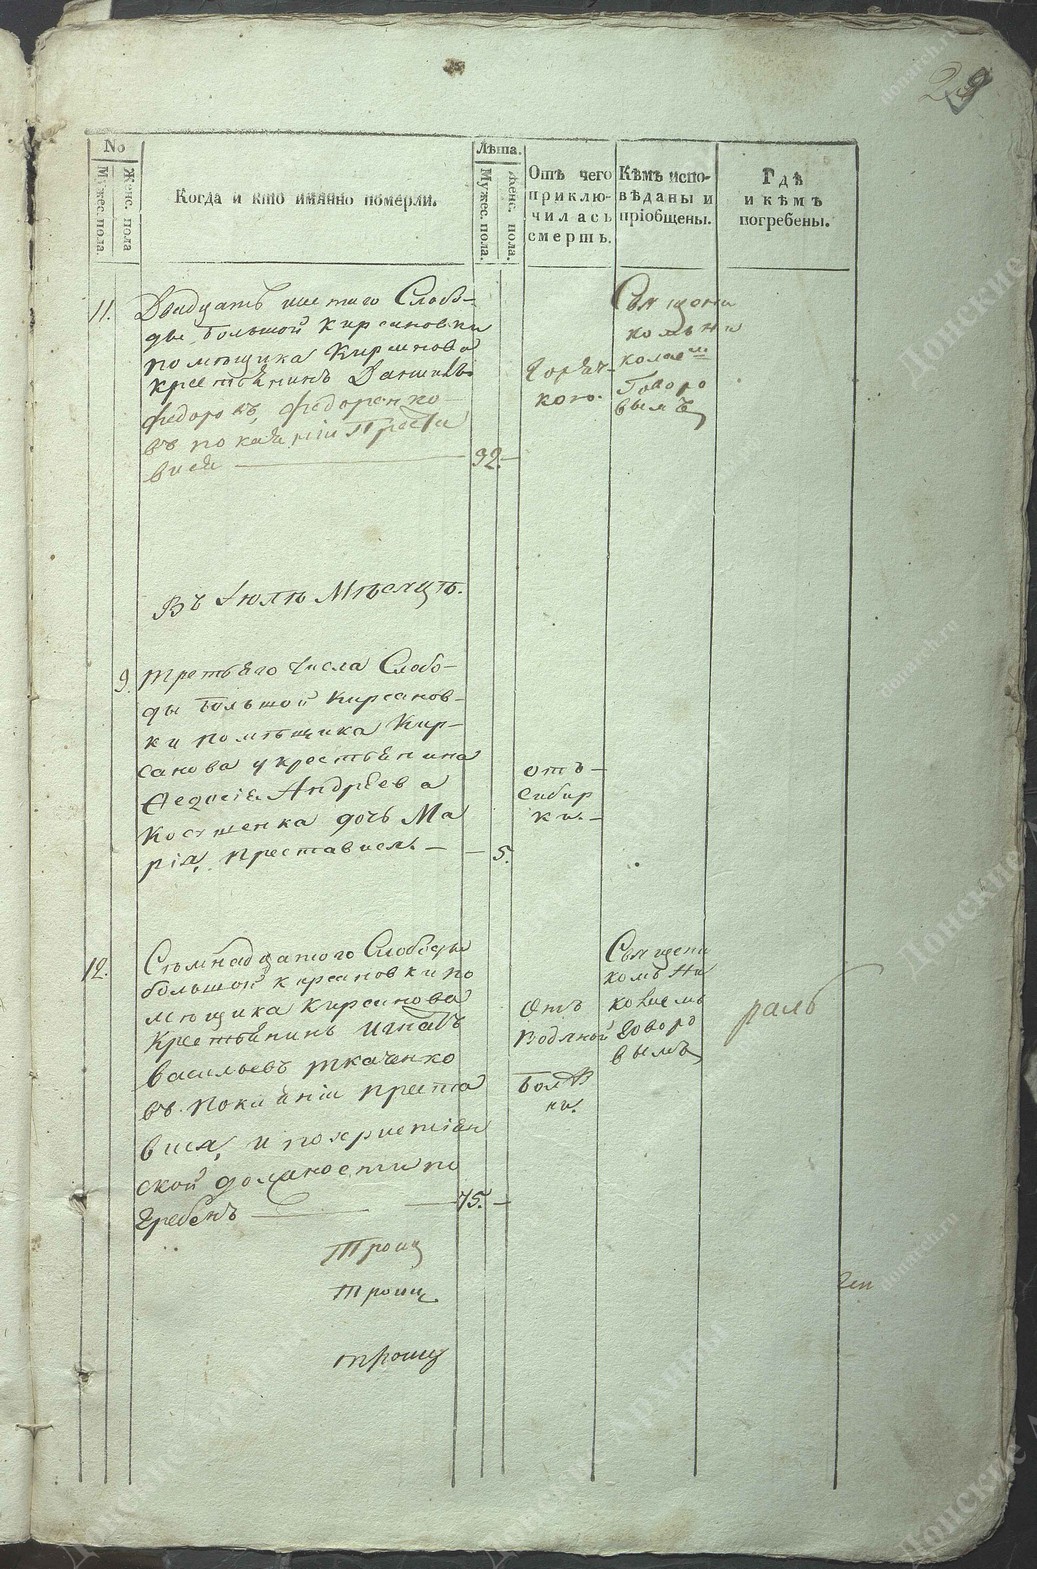 29
No
Мужес. пола
Женс. пола
Когда и кто имянно померли.
Лѣта.
Мужес. пола.
Женс. пола.
Отъ чего
приклю-
чилась
смерть.
Кѣмъ испо-
вѣданы и
прiобщены.
Гдѣ
и кѣмъ
погребены.
11.
Двадцать шестаго Слобо-
ды большой кирсановки
помѣщика Кирсанова
крестьянинъ Данiилъ
Федоровъ, Федоренко
въ покаянiи Преста
вися
92.
Горяч-
кою.
Священи
комъ ни
колаем
Говоро
вымъ
Въ Iюлѣ Мѣсяцѣ.
9.
третьяго числа Слобо-
ды большой кирсанов-
ки помѣщика Кир-
санова у крестьянина
Ѳедосiя Андрѣева
дочь Ма
рiя, преставися.
5.
отъ
Сибир
ки.
12.
Семнадцатого Слободы
большой кирсановки по
мѣщика Кирсанова
Крестьянинъ Игнатъ
васильевъ ткаченко
въ покаянiи преста
вися, и похристiян
ской должности по
гребенъ
75.
Отъ
Водяной
Болѣз
ни.
Священи
комъ Ни
колаемъ
Говоро
вымъ
Троиц
троиц
троиц
Донские Архивы
donarch.ru